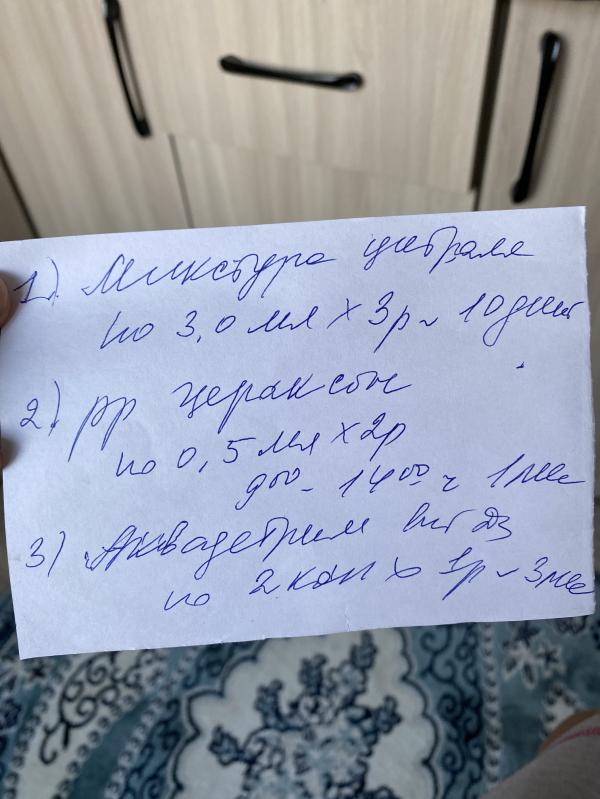 1) Микстура цитраля
по 3,0 мл х 3р ~ 10 дней
2) рр цераксон
по 0,5 мл х 2р
9⁰⁰ - 14⁰⁰ ч 1 мес
3) Аквадетрим вит Д3
по 2 кап х 1р ~ 3 мес